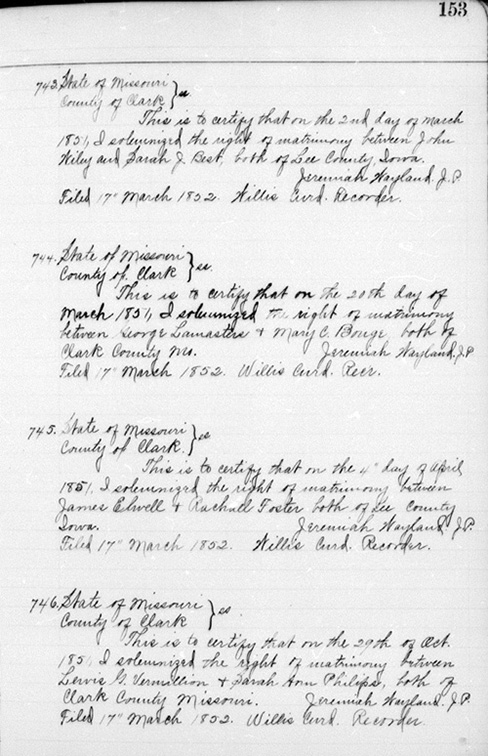 153
743. State of Missouri
County of Clark } ss.
This is to certify that on the 2nd day of March
1851, I solemnized the right of matrimony between John
Wiley and Sarah J. Best, both of Lee County, Iowa.
Jeremiah Wayland J.P.
Filed 17" March 1852. Willis Curd. Recorder.
744. State of Missouri
County of Clark } ss.
This is to certify that on the 20th day of
March 1851, I solemnized the right of matrimony
between George Lamasters & Mary C. Bouge, both of
Clark County Mo. Jeremiah Wayland, J.P.
Filed 17" March 1852. Willis Curd. Recr.
745. State of Missouri
County of Clark. } ss
This is to certify that on the 4" day of April
1851, I solemnized the right of matrimony between
James Elwell & Rachael Foster both of Lee County
Iowa. Jeremiah Wayland J.P.
Filed 17" March 1852. Willis Curd. Recorder.
746. State of Missouri
County of Clark } ss.
This is to certify that on the 29th of Oct.
1851 I solemnized the right of matrimony between
Lewis G. Vermillion & Sarah Ann Philips, both of
Clark County Missouri. Jeremiah Wayland, J.P.
Filed 17" March 1852. Willis Curd. Recorder